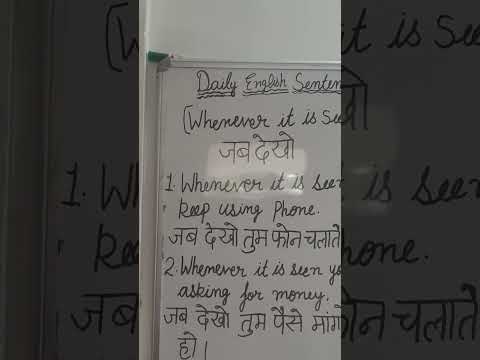 Daily English Senten
(Whenever it is See
जब देखो
1. Whenever it is seen
keep using Phone.
जब देखो तुम फोन चलाते
2. Whenever it is seen yo
asking for money.
जब देखो तुम पैसे मांग
हो।